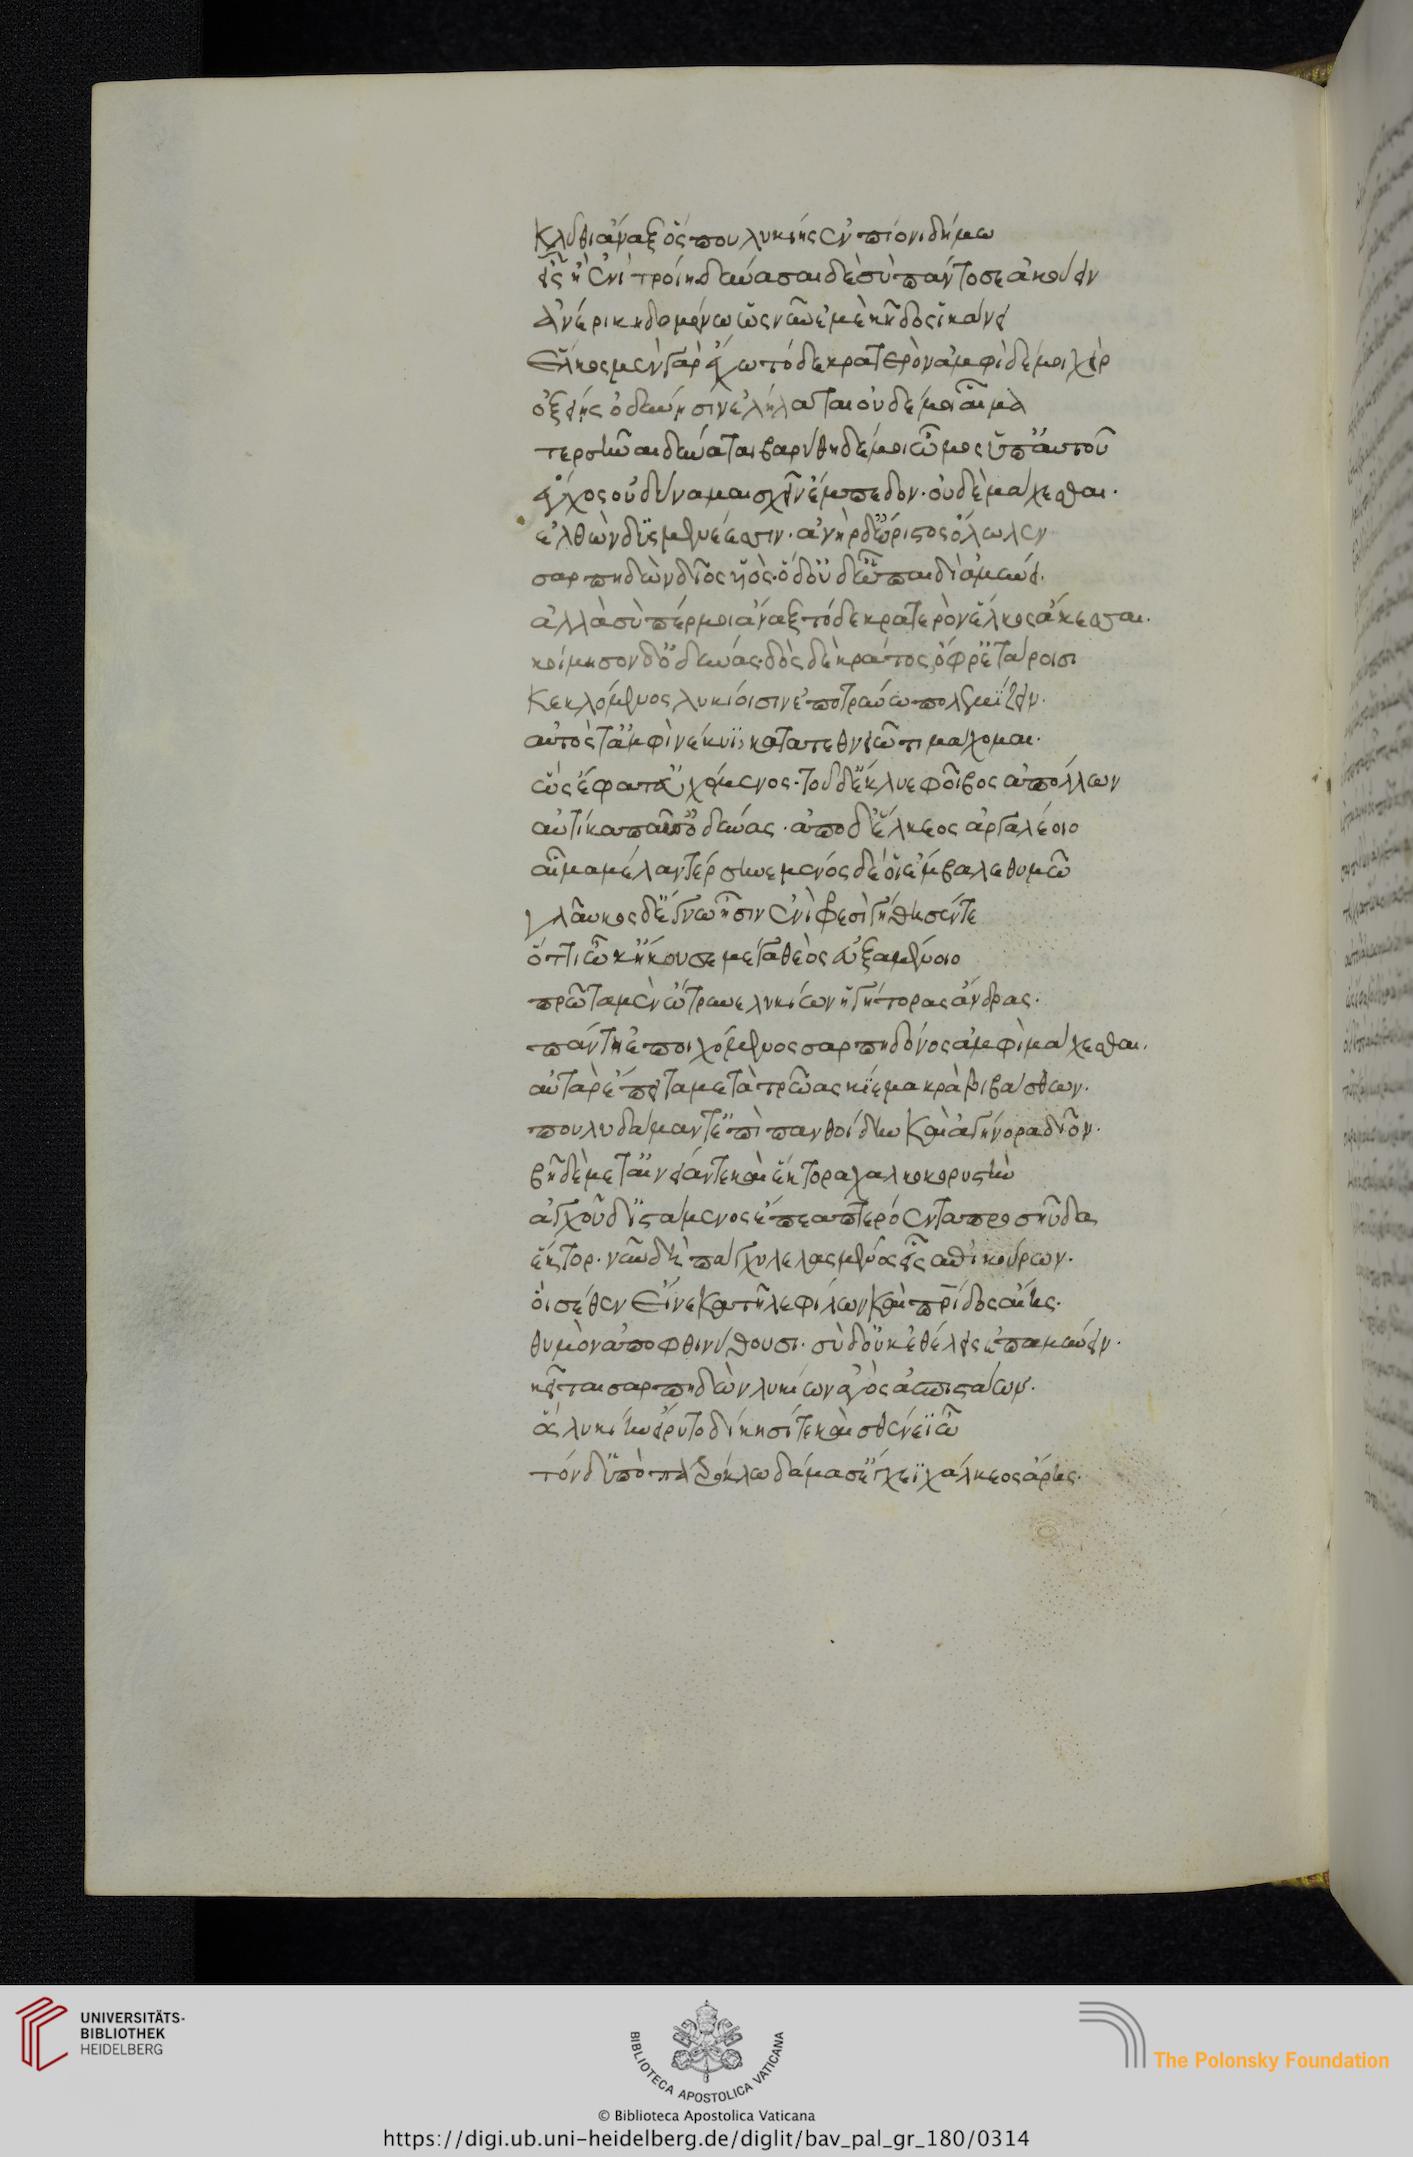 Κλῦθι ἄναξ ὅς που λυκίης ἐν πίονι δήμω
εἶς ἢ ἐνὶ τροίη· δύνασαι δὲ σὺ πάντοσε ἀκούειν
ἀνέρι κηδομένω ὥς νῦν ἐμὲ κῆδος ἵκάνει
ἕλκος μὲν γὰρ ἔχω τόδε κρατερὸν ἀμφὶ δέ μοι χεὶρ
ὀξείης ὀδύνησιν ἐλήλαται οὐδέ μοι αἷμα
τερσῆναι δύναται βαρύθη δέ μοι ὦμος ὑπ' αὐτοῦ
ἔγχος οὐ δύναμαι σχεῖν ἔμπεδον· οὐδὲ μάχεσθαι·
ἐλθὼν δυσμενέεσσιν· ἀνὴρ δ' ὥριστος ὄλωλεν
σαρπηδὼν διὸς υἱὸς· ὁ δ' οὐδ' ὧ παιδὶ ἀμύνει·
ἀλλὰ σὺ πέρ μοι ἄναξ τόδε κρατερὸν ἕλκος ἄκεσσαι·
κοίμησον δ' ὀδύνας· δὸς δὲ κράτος ὄφρ' ἑτάροισι
Κεκλόμενος λυκίοισιν ἐποτρύνω πολεμίζειν·
αὐτός τ' ἀμφὶ νέκυϊ κατατεθνειῶτι μάχομαι·
ὣς ἔφατ' εὐχόμενος· τοῦ δ' ἔκλυε φοῖβος ἀπόλλων
αὐτίκα παῦσ' ὀδύνας· ἀπὸ δ' ἕλκεος ἀργαλέοιο
αἷμα μέλαν τέρσηνε μένος δέ οἱ ἔμβαλε θυμῶ
γλαῦκος δ' ἔγνω ἧσιν ἐνὶ φρεσὶ γήθησέν τε
ὅττι ὧκ' ἤκουσε μέγας θεὸς εὐξαμένοιο
πρῶτα μὲν ὤτρυνε λυκίων ἡγήτορας ἄνδρας·
πάντη ἐποιχόμενος σαρπηδόνος ἀμφὶ μάχεσθαι·
αὐτὰρ ἔπειτα μετὰ τρῶας κίε μακρὰ βιβάσθων·
πουλυδάμαντ' ἔπι πανθοίδην Καὶ ἀγήνορα δῖον·
βῆ δὲ μετ' αἰνείαν τε καὶ ἕκτορα χαλκοκορυστὴν
ἀγχοῦ δ' ἱστάμενος ἔπεα πτερόεντα προσηύδα
ἕκτορ· νῦν δὴ πάγχυ λελασμένος εἶς ἐπικούρων·
οἳ σέθεν εἵνεκα τῆλε φίλων Καὶ πατρίδος αἴης·
θυμὸν ἀποφθινύθουσι· σὺ δ' οὐκ ἐθέλεις ἐπαμύνειν·
κεῖται σαρπηδὼν λυκίων ἀγὸς ἀσπιστάων·
ὃς λυκίην εἴρυτο δίκησί τε καὶ σθένεϊ ὧ
τόνδ' ὑπὸ πατρόκλω δάμασ' ἔγχεϊ χάλκεος ἄρης·
UNIVERSITÄTS-
BIBLIOTHEK
HEIDELBERG
BIBLIOTECA APOSTOLICA VATICANA
The Polonsky Foundation
© Biblioteca Apostolica Vaticana
https://digi.ub.uni-heidelberg.de/diglit/bav_pal_gr_180/0314